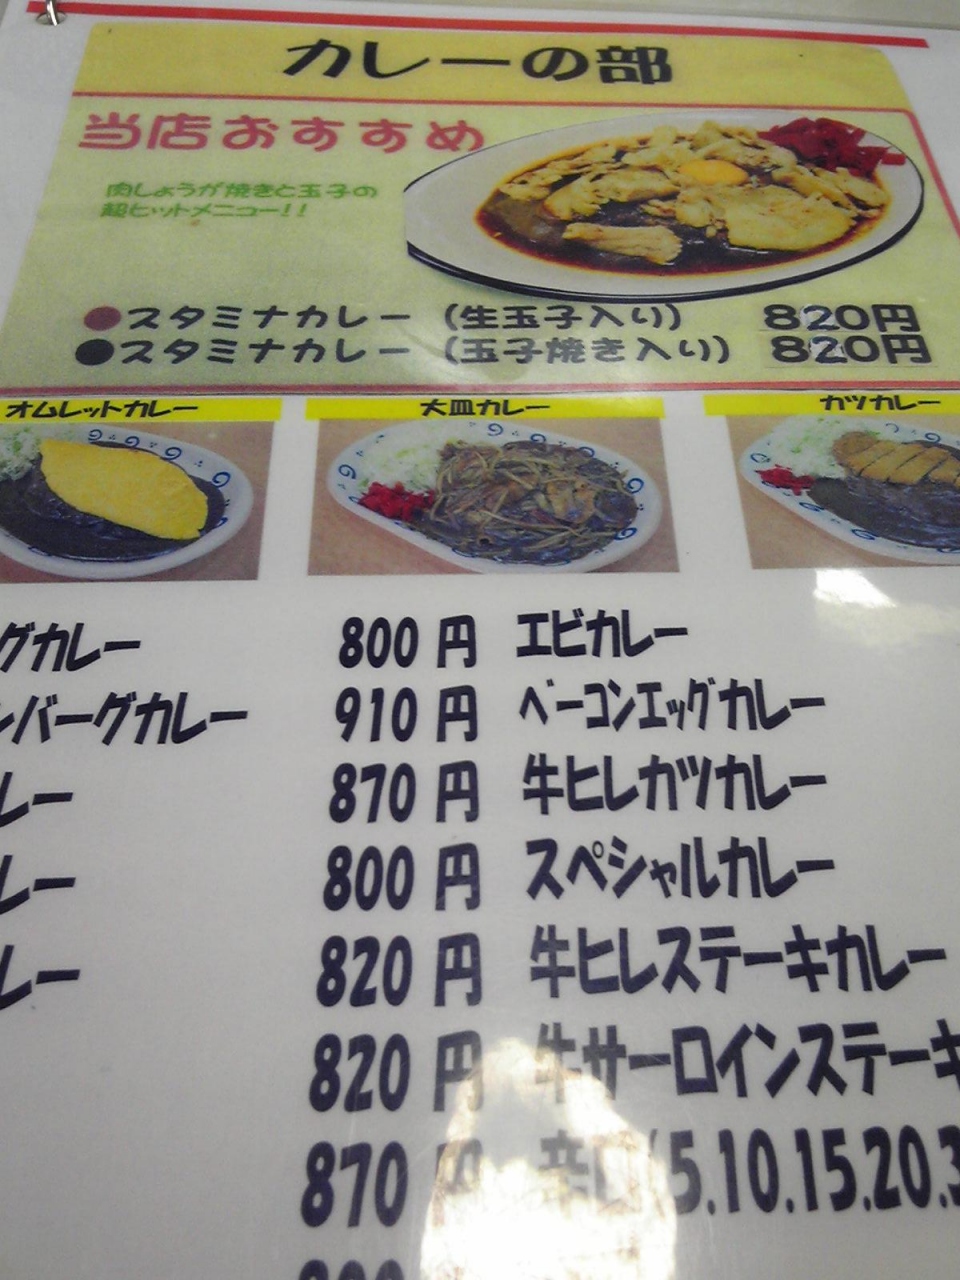 カレーの部
当店おすすめ
肉しょうが焼きと玉子の
超ヒットメニュー!!
●スタミナカレー（生玉子入り） 820円
●スタミナカレー（玉子焼き入り） 820円
オムレットカレー 大皿カレー カツカレー
グカレー 800円 エビカレー
ンバーグカレー 910円 ベーコンエッグカレー
レー 870円 牛ヒレカツカレー
レー 800円 スペシャルカレー
レー 820円 牛ヒレステーキカレー
820円 牛サーロインステーキ
870円 辛口(5.10.15.20.3